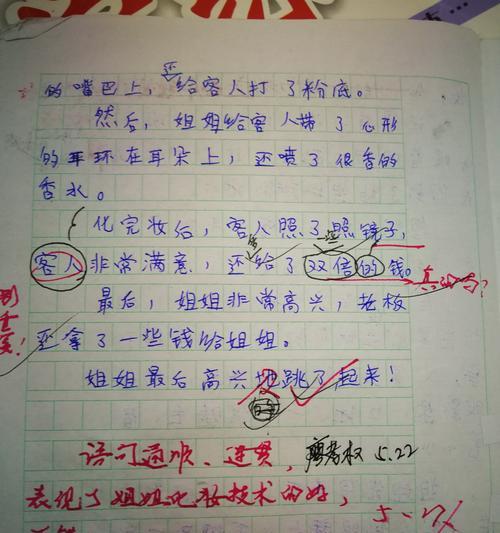 还
的嘴巴上，给客人打了粉底。
然后，姐姐给客人带了心形
的耳环在耳朵上，还喷了很香的
香水。
化完妆后，客人照了照镜子，
客人非常满意，还给了双倍的钱。
最后，姐姐非常高兴，老板
还拿了一些钱给姐姐。
姐姐最后高兴地跳了起来！
语句通顺、连贯，
5.22
表现了姐姐化妆技术的好，